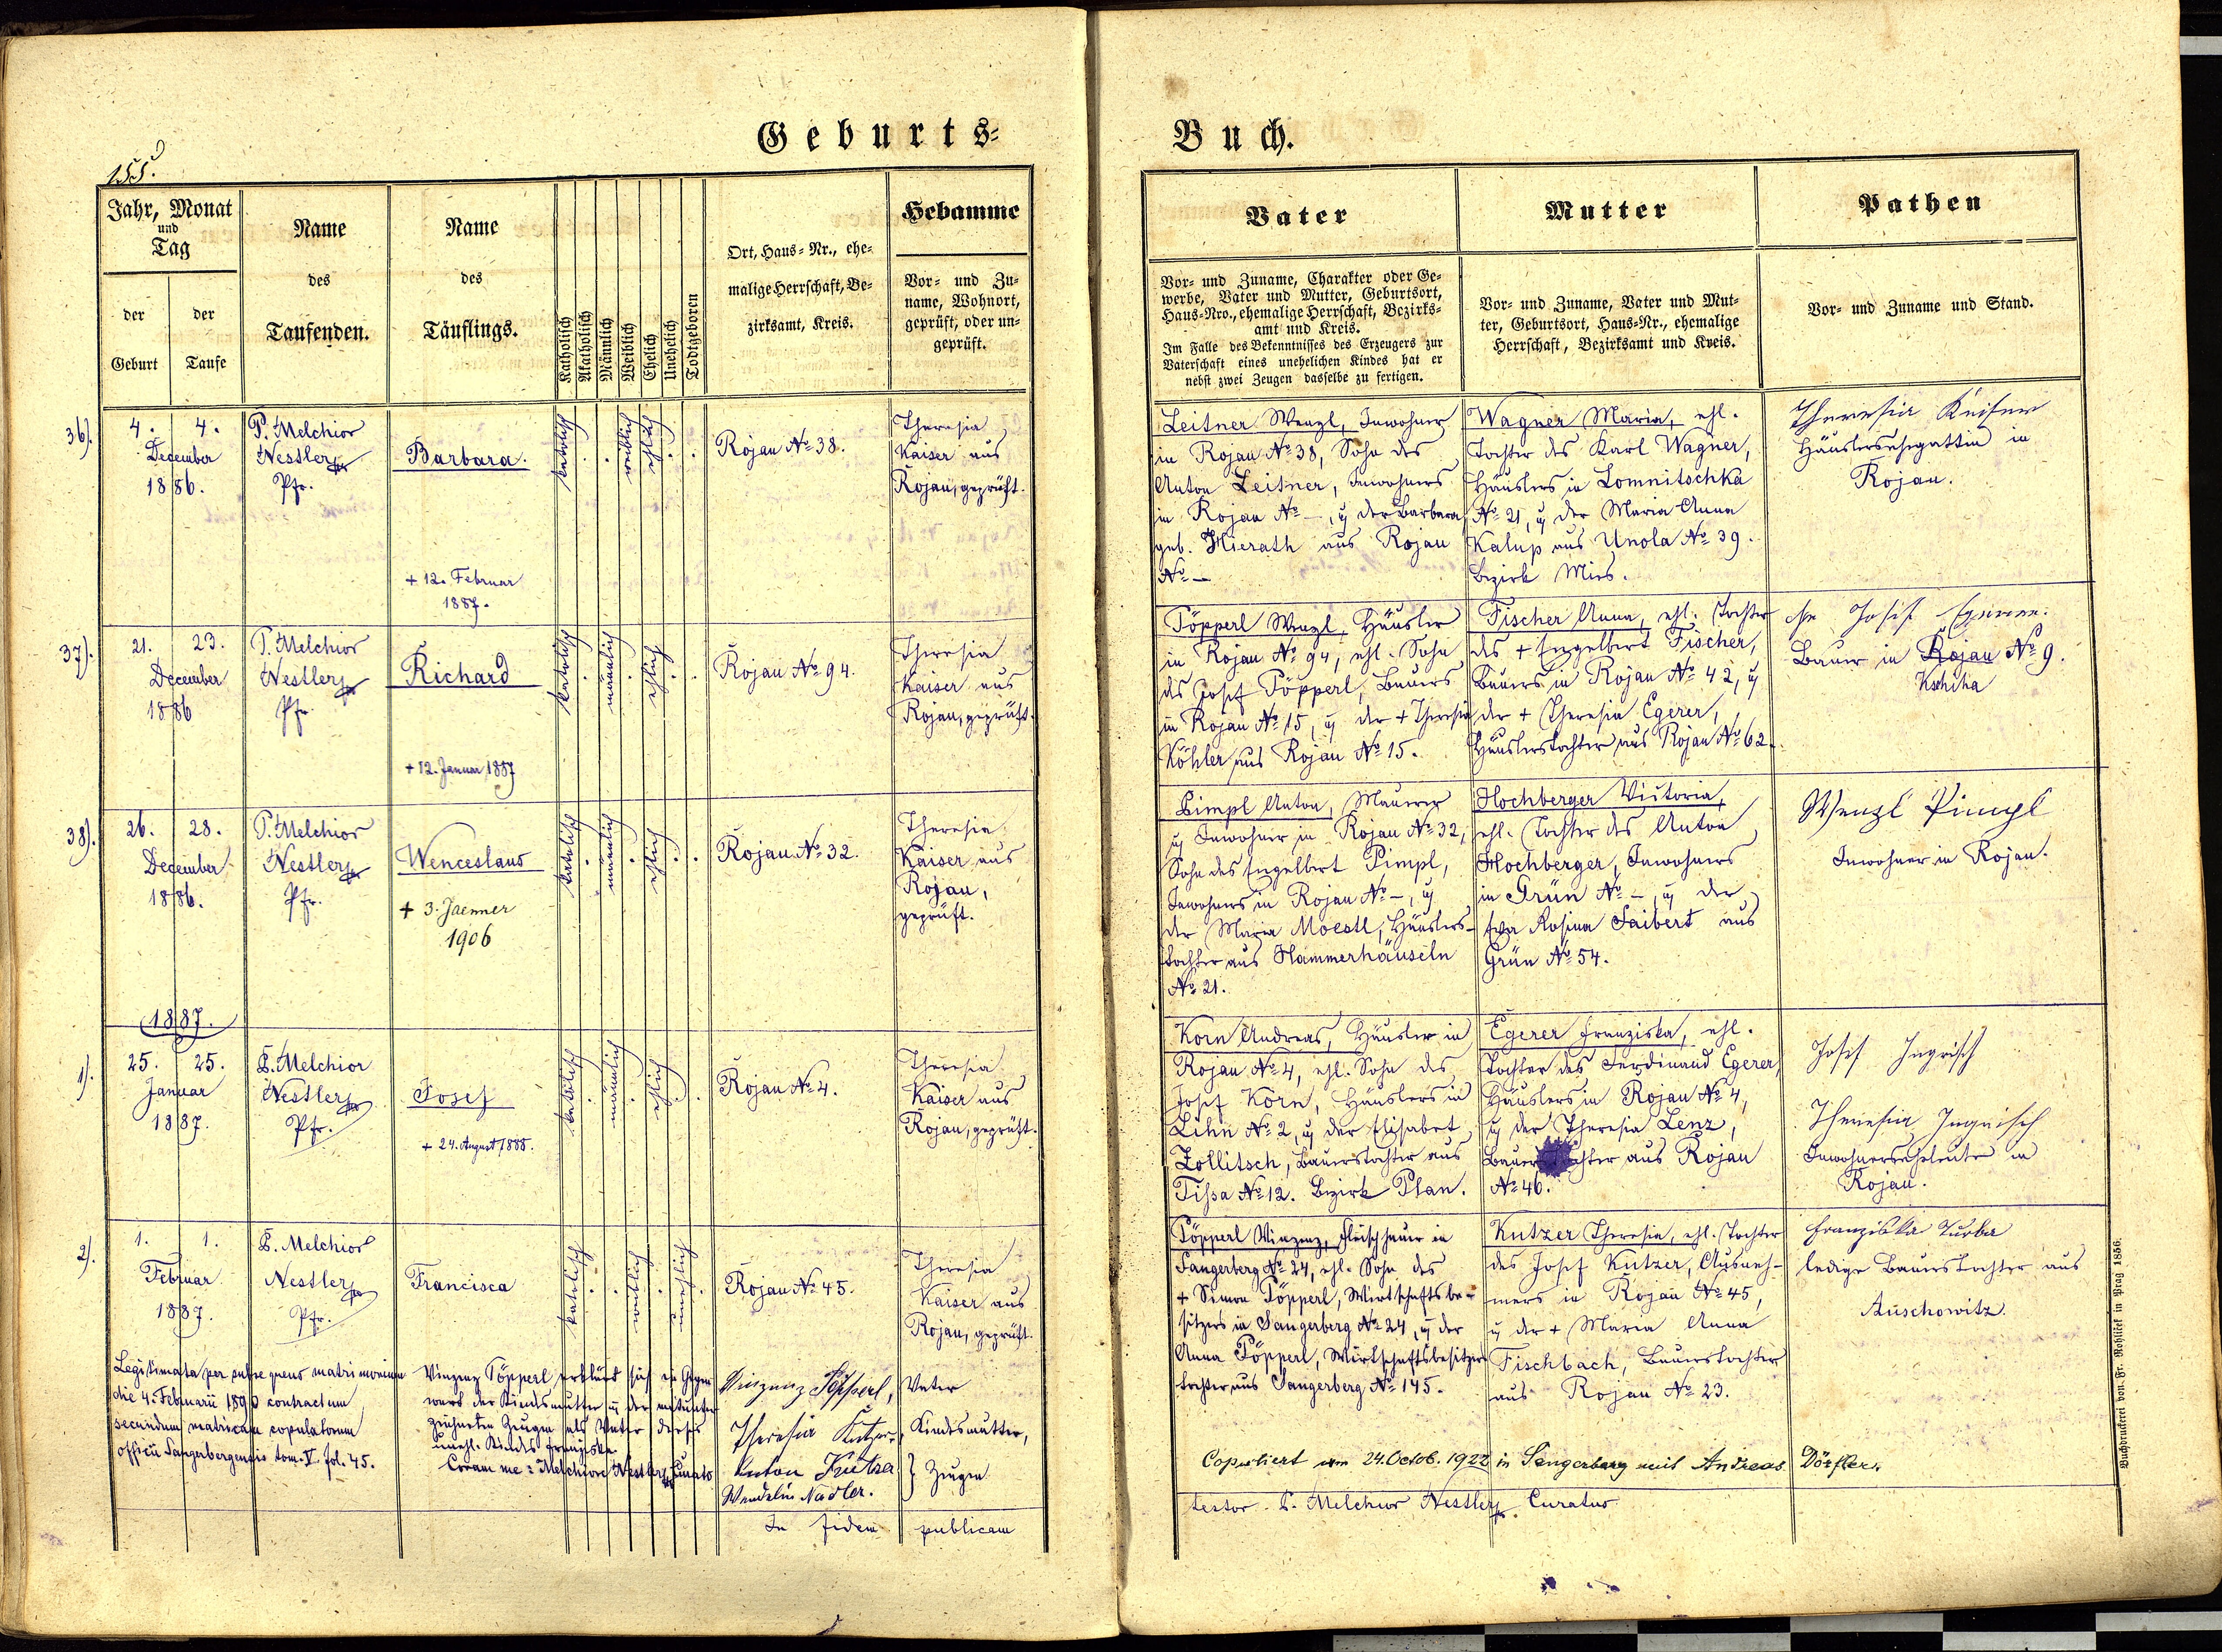 Geburts-
Buch.
155.
Jahr, Monat
und
Tag
der
Geburt
der
Taufe
Name
des
Taufenden.
Name
des
Täuflings.
Katholisch
Akatholisch
Männlich
Weiblich
Ehelich
Unehelich
Todtgeboren
Ort, Haus-Nr., ehe-
malige Herrschaft, Be-
zirksamt, Kreis.
Hebamme
Vor- und Zu-
name, Wohnort,
geprüft, oder un-
geprüft.
Vater
Vor- und Zuname, Charakter oder Ge-
werbe, Vater und Mutter, Geburtsort,
Haus-Nro., ehemalige Herrschaft, Bezirks-
amt und Kreis.
Im Falle des Bekenntnisses des Erzeugers zur
Vaterschaft eines unehelichen Kindes hat er
nebst zwei Zeugen dasselbe zu fertigen.
Mutter
Vor- und Zuname, Vater und Mut-
ter, Geburtsort, Haus-Nr., ehemalige
Herrschaft, Bezirksamt und Kreis.
Pathen
Vor- und Zuname und Stand.
36).
4. 4.
December
1886.
P. Melchior
Nestler
Pfr.
Barbara.
+ 12. Februar
1887.
katholisch
weiblich
ehelich
Rojau No 38.
Theresia
Kaiser aus
Rojau, geprüft.
Leitner Wenzl, Inwohner
in Rojau No 38, Sohn des
Anton Leitner, Inwohners
in Rojau No —, u der Barbara
geb. Hierath aus Rojau
No —
Wagner Maria, ehl.
Tochter des Karl Wagner,
Häuslers in Lomnitschka
No 21, u der Maria Anna
Kalup aus Unola No 39.
Bezirk Mies.
Theresia Keiser
Häuslersehegattin in
Rojau.
37).
21. 23.
December
1886
P. Melchior
Nestler
Pfr.
Richard
+ 12. Januar 1887
katholisch
männlich
ehelich
Rojau No 94.
Theresia
Kaiser aus
Rojau, geprüft.
Töpperl Wenzl, Häusler
in Rojau No 94, ehl. Sohn
des Josef Töpperl, Bauers
in Rojau No 15, u der + Theresia
Köhler aus Rojau No 15.
Fischer Anna, ehl. Tochter
des + Engelbert Fischer,
Bauers in Rojau No 42, u
der + Theresia Egerer,
Häuslerstochter aus Rojau No 62.
Josef
Bauer in Rojau No 9.
Kschiha
38).
26. 28.
December
1886.
P. Melchior
Nestler
Pfr.
Wenceslaus
+ 3. Jaenner
1906
katholisch
männlich
ehelich
Rojau No 32.
Theresia
Kaiser aus
Rojau,
geprüft.
Pimpl Anton, Maurer
u Inwohner in Rojau No 32,
Sohn des Engelbert Pimpl,
Inwohners in Rojau No —, u
der Maria Moestl, Häuslers-
tochter aus Hammerhäuseln
No 21.
Hochberger Victoria,
ehl. Tochter des Anton
Hochberger, Inwohners
in Grün No —, u der
Eva Rosina Saibert aus
Grün No 54.
Wenzl Pimpl
Inwohner in Rojau.
1887.
1).
25. 25.
Januar
1887.
P. Melchior
Nestler
Pfr.
Josef
+ 24. August 1888.
katholisch
männlich
ehelich
Rojau No 4.
Theresia
Kaiser aus
Rojau, geprüft.
Korn Andreas, Häusler in
Rojau No 4, ehl. Sohn des
Josef Korn, Häuslers in
Lihn No 2, u der Elisabet
Zollitsch, Bauerstochter aus
Tißa No 12. Bezirk Plan.
Egerer Franziska, ehl.
Tochter des Ferdinand Egerer,
Häuslers in Rojau No 4,
u der Theresia Lenz,
Bauerstochter aus Rojau
No 46.
Josef Ingrisch
Theresia Ingrisch
Inwohnerseheleute in
Rojau.
2).
1. 1.
Februar
1887.
P. Melchior
Nestler
Pfr.
Francisca
katholisch
weiblich
unehelich
Rojau No 45.
Theresia
Kaiser aus
Rojau, geprüft.
Töpperl Vinzenz, Fleischhauer in
Sangerberg No 24, ehl. Sohn des
+ Simon Töpperl, Wirtschaftsbe-
sitzers in Sangerberg No 24, u der
Anna Töpperl, Wirtschaftsbesitzers
tochter aus Sangerberg No 145.
Kutzer Theresia, ehl. Tochter
des Josef Kutzer, Ausneh-
mers in Rojau No 45,
u der + Maria Anna
Fischbach, Bauerstochter
aus Rojau No 23.
Franziska Turba
ledige Bauerstochter aus
Auschowitz.
Legitimata per subsequens matrimonium
die 4. Februarii 1890 contractum
secundum matricam copulatorum
officii Sangerbergensis tom. V. fol. 45.
Vinzenz Töpperl erklärt sich in Gegen
wart der Kindsmutter u der mitunter
zeichneten Zeugen als Vater dieses
unehl. Kindes Franziska
Coram me: Melchiore Nestler, Curato
Vinzenz Töpperl, Vater
Theresia Kutzer, Kindsmutter,
Anton Kutzer } Zeugen
Wendelin Nadler.
In fidem publicam
Copuliert am 24. Octob. 1922 in Sangerberg mit Andreas Dörfler.
testor P. Melchior Nestler Curatus
Buchdruckerei von Fr. Rohliček in Prag 1856.